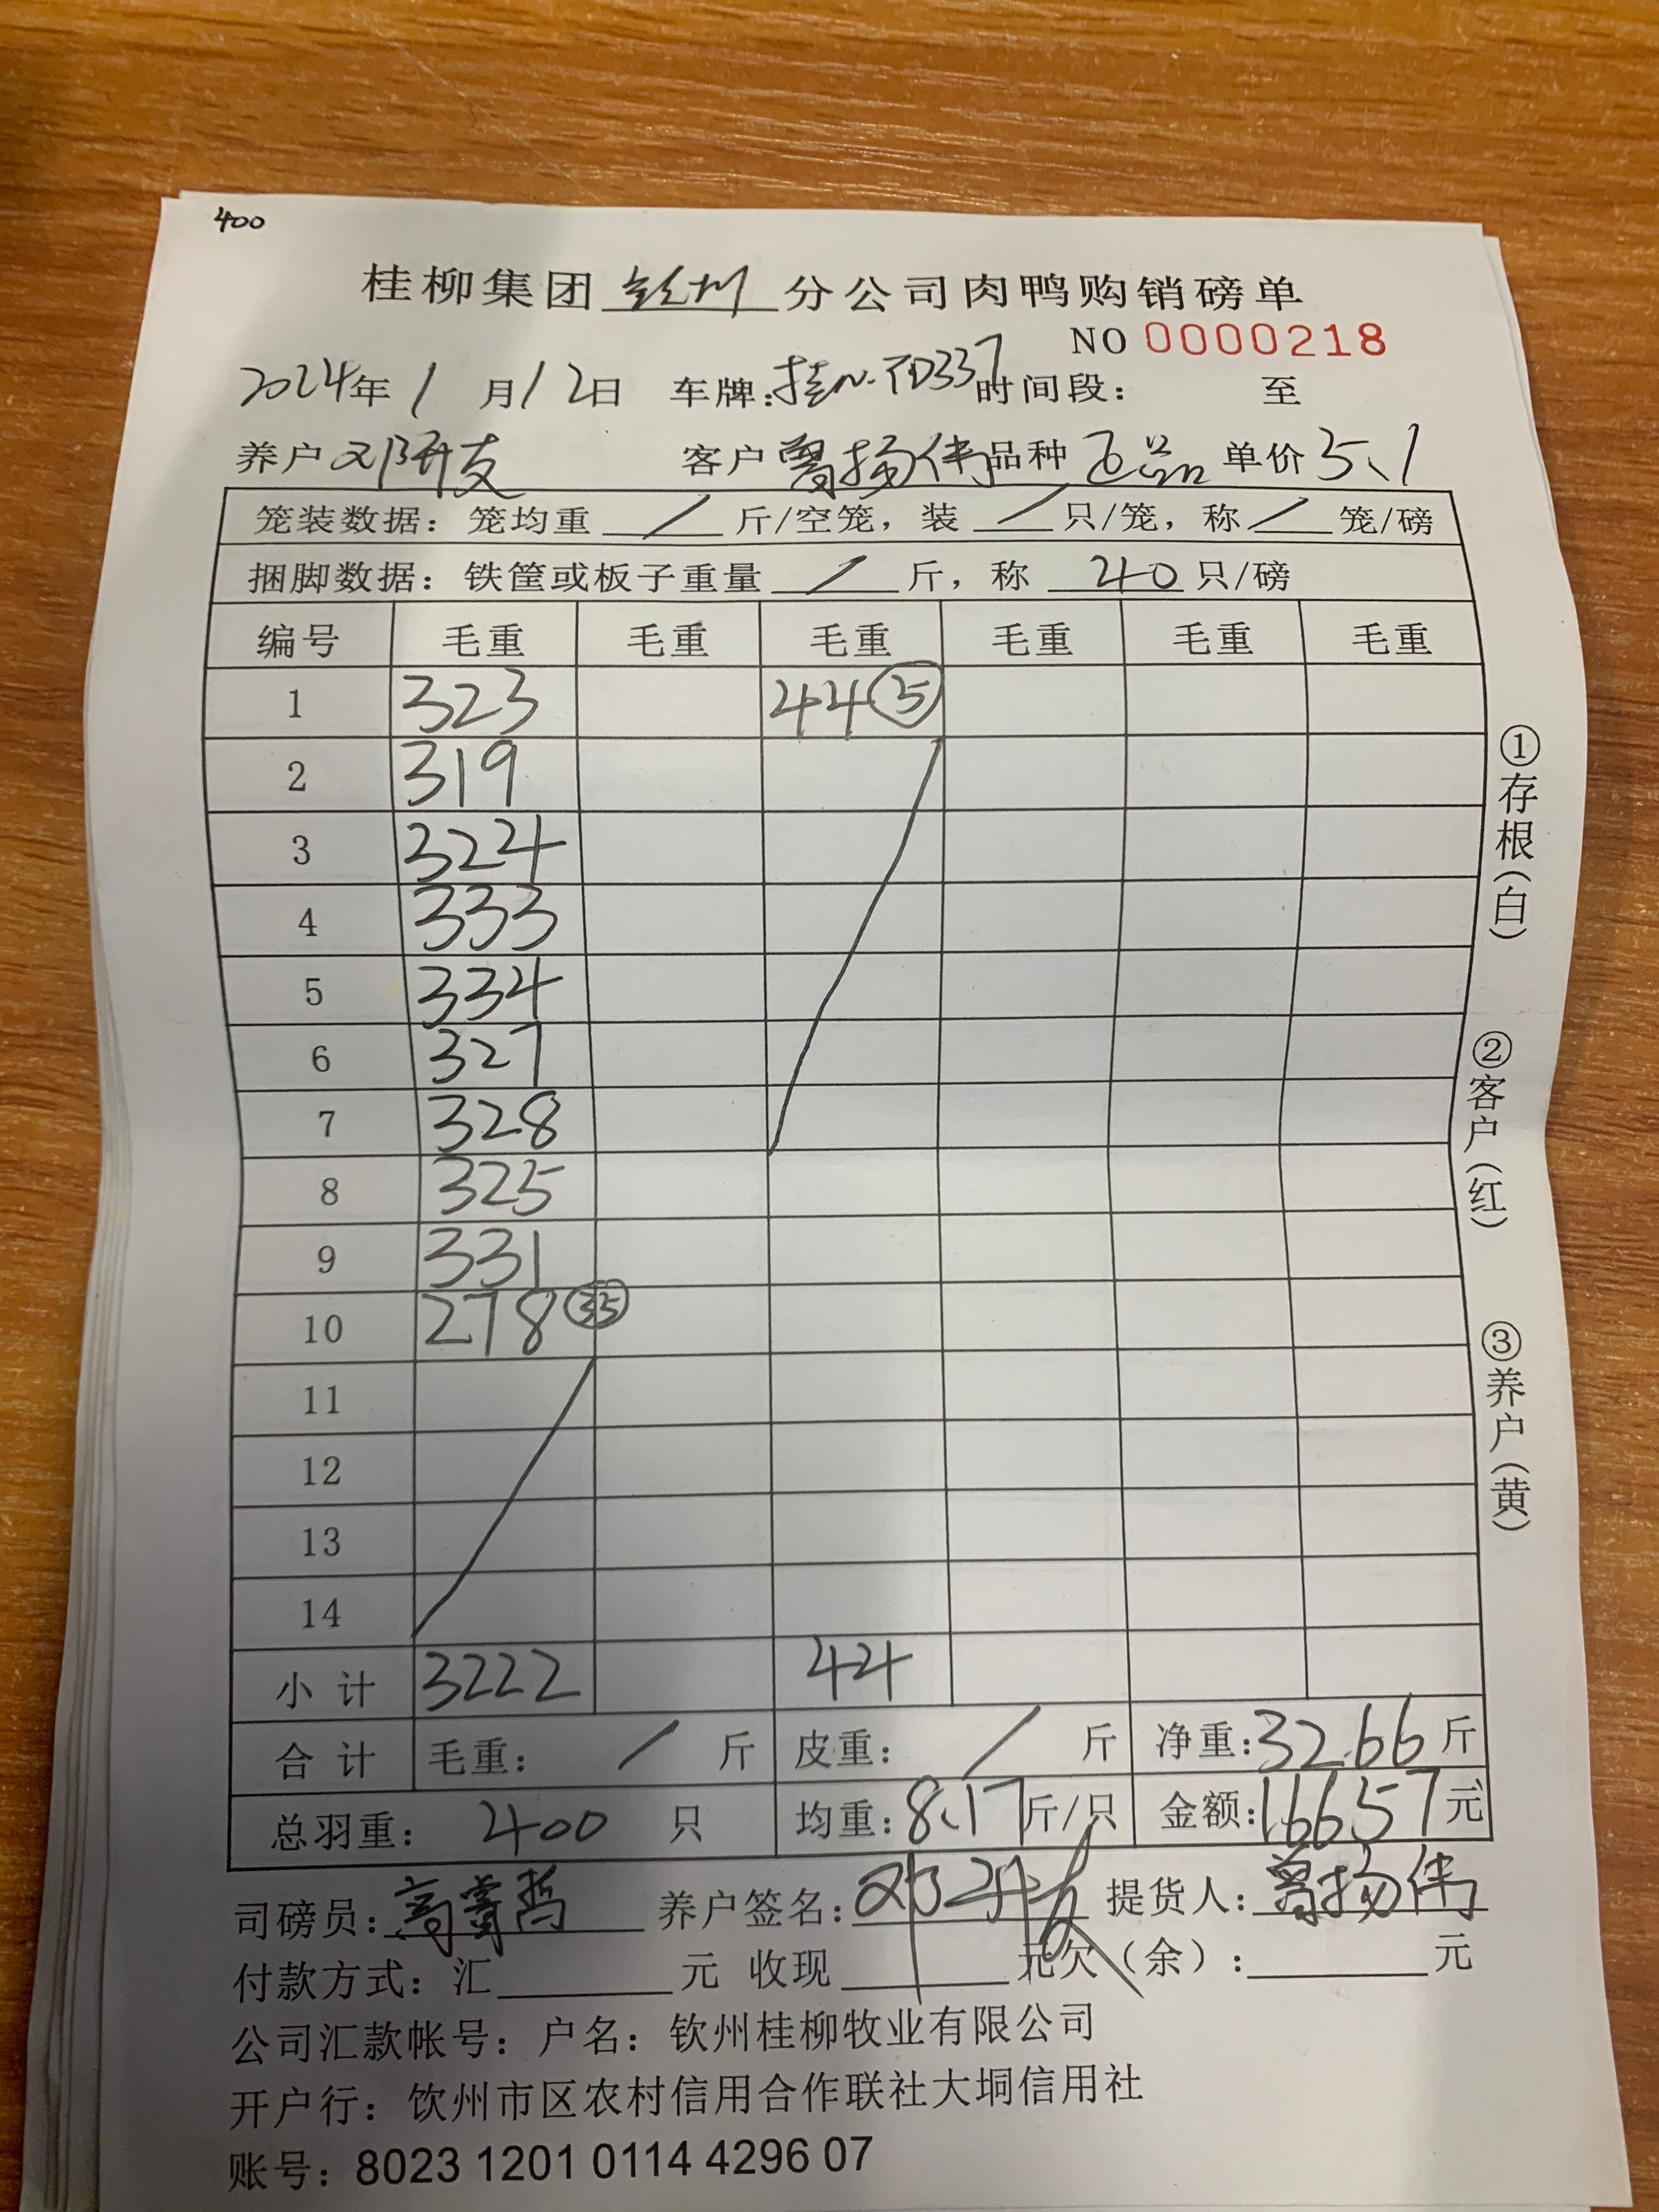 400
桂柳集团 钦州 分公司肉鸭购销磅单
NO 0000218
2024年 1 月 12日 车牌:桂N·TD337 时间段: 至
养户 邓开友 客户 曾扬伟 品种 正品 单价 5.1
笼装数据: 笼均重 / 斤/空笼, 装 / 只/笼, 称 / 笼/磅
捆脚数据: 铁筐或板子重量 / 斤, 称 40 只/磅
编号 毛重 毛重 毛重 毛重 毛重 毛重
1 323 44 ⑤
2 319
3 324
4 333
5 334
6 327
7 328
8 325
9 331
10 278 ㉟
11
12
13
14
小计 3222 44
合计 毛重: / 斤 皮重: / 斤 净重:3266 斤
总羽重: 400 只 均重:8.17斤/只 金额:16657元
司磅员: 养户签名:邓开友 提货人:曾扬伟
付款方式: 汇 元 收现 元欠(余): 元
公司汇款帐号: 户名: 钦州桂柳牧业有限公司
开户行: 钦州市区农村信用合作联社大垌信用社
账号: 8023 1201 0114 4296 07
①存根(白)
②客户(红)
③养户(黄)